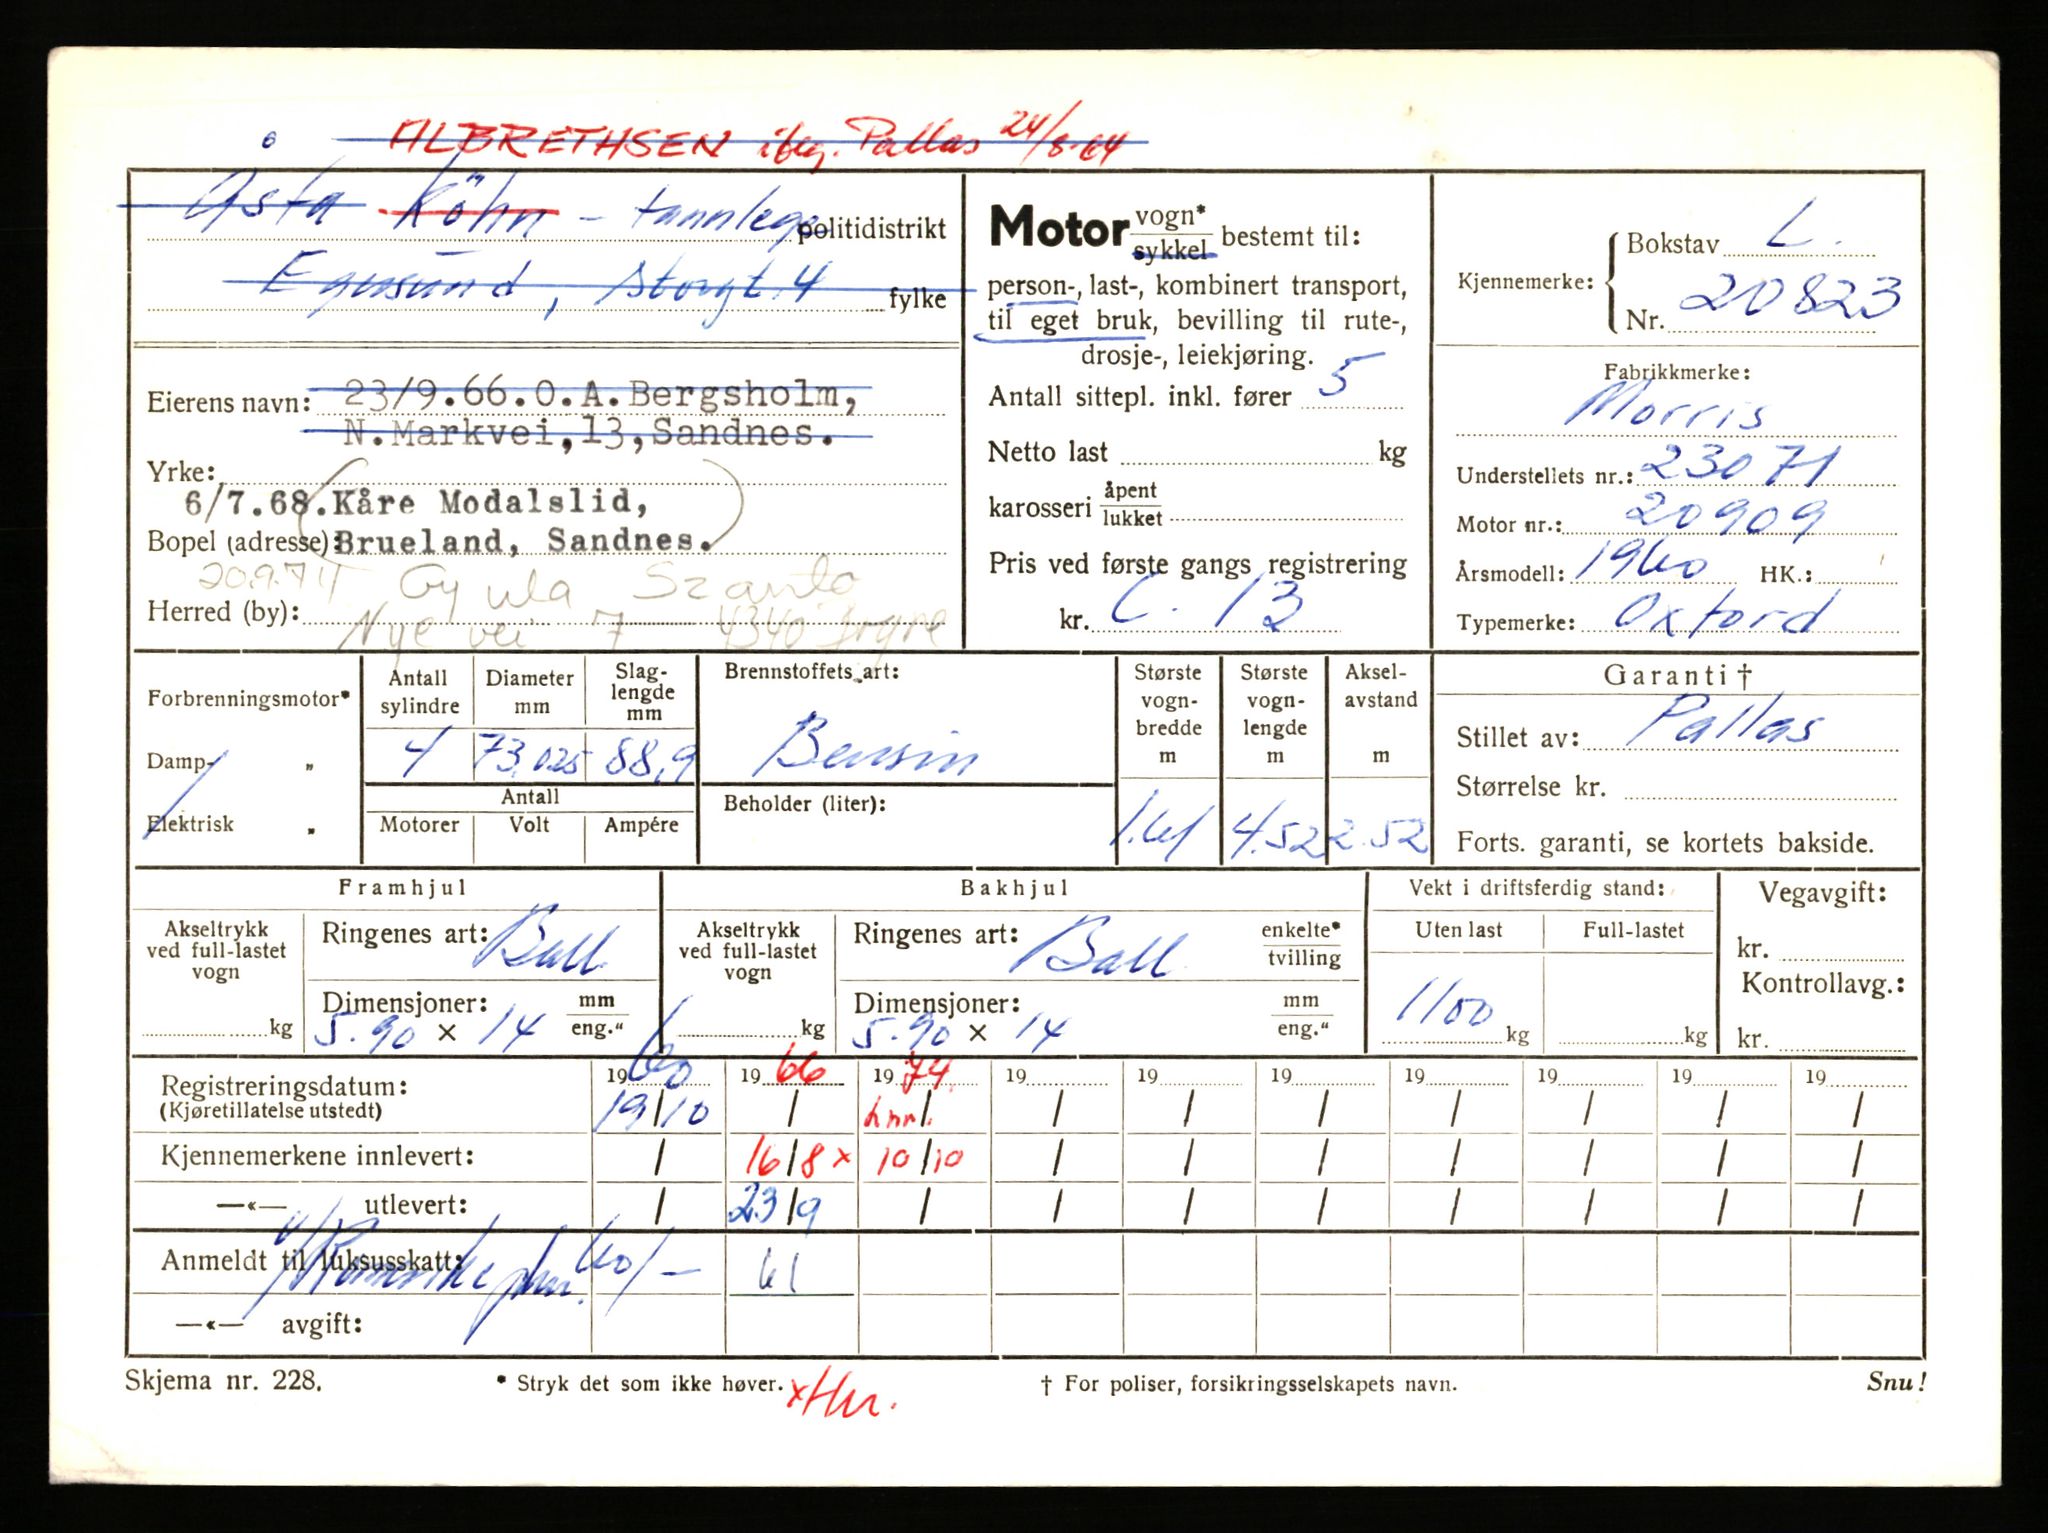 ALBRETHSEN iflg. Pallas 24/8-64
Asta Köhn - tannlege politidistrikt
Egersund, Storgt. 4 fylke
Eierens navn: 23/9.66. O.A. Bergsholm,
N.Markvei, 13, Sandnes.
Yrke:
6/7.68. Kåre Modalslid,
Bopel (adresse): Brueland, Sandnes.
20.9.74 Gyula Szanto
Herred (by): Nye vei 7 4340 Bryne
Motor vogn* sykkel bestemt til:
person-, last-, kombinert transport,
til eget bruk, bevilling til rute-,
drosje-, leiekjøring.
Antall sittepl. inkl. fører 5
Netto last kg
karosseri åpent lukket
Pris ved første gangs registrering
kr. C. 13
Kjennemerke: Bokstav L.
Nr. 20823
Fabrikkmerke:
Morris
Understellets nr.: 23071
Motor nr.: 20909
Årsmodell: 1960 HK.:
Typemerke: Oxford
Forbrenningsmotor*
Damp- "
Elektrisk "
Antall sylindre Diameter mm Slag-lengde mm
4 73,025 88,9
Antall
Motorer Volt Ampére
Brennstoffets art:
Bensin
Beholder (liter):
Største vogn-bredde m Største vogn-lengde m Aksel-avstand m
1.61 4.52 2.52
Garanti †
Stillet av: Pallas
Størrelse kr.
Forts. garanti, se kortets bakside.
Framhjul
Akseltrykk ved full-lastet vogn kg
Ringenes art: Ball
Dimensjoner: mm eng."
5.90 × 14
Bakhjul
Akseltrykk ved full-lastet vogn kg
Ringenes art: Ball enkelte* tvilling
Dimensjoner: mm eng."
5.90 × 14
Vekt i driftsferdig stand:
Uten last Full-lastet
1100 kg kg
Vegavgift:
kr.
Kontrollavg.:
kr.
Registreringsdatum: 1960 1966 1974 19 19 19 19 19 19 19
(Kjøretillatelse utstedt) 19/10 / / / / / / / / /
Kjennemerkene innlevert: / 16/8 x 10/10 / / / / / / /
—«— utlevert: / 23/9 / / / / / / / /
Anmeldt til luksusskatt: 60/- 61
—«— avgift:
Skjema nr. 228. * Stryk det som ikke høver. † For poliser, forsikringsselskapets navn. Snu!